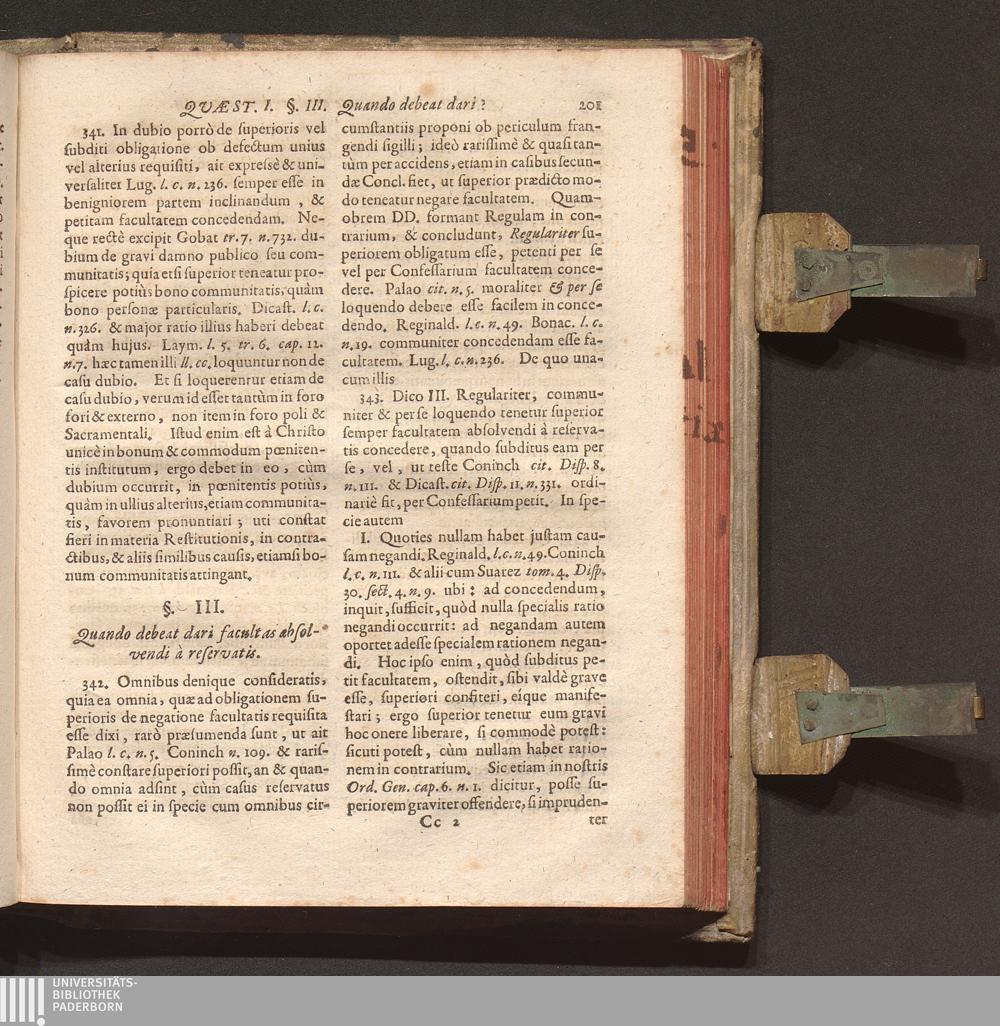 QVÆST. I. §. III. Quando debeat dari? 201
341. In dubio porrò de ſuperioris vel
ſubditi obligatione ob defectum unius
vel alterius requiſiti, ait expreſsè & uni-
verſaliter Lug. l. c. n. 236. ſemper eſſe in
benigniorem partem inclinandum, &
petitam facultatem concedendam. Ne-
que rectè excipit Gobat tr. 7. n. 732. du-
bium de gravi damno publico ſeu com-
munitatis; quia etſi ſuperior teneatur pro-
ſpicere potiùs bono communitatis, quàm
bono perſonæ particularis. Dicaſt. l. c.
n. 326. & major ratio illius haberi debeat
quàm hujus. Laym. l. 5. tr. 6. cap. 12.
n. 7. hæc tamen illi ll. cc. loquuntur non de
caſu dubio. Et ſi loquerentur etiam de
caſu dubio, verum id eſſet tantùm in foro
fori & externo, non item in foro poli &
Sacramentali. Iſtud enim eſt à Chriſto
unicè in bonum & commodum pœniten-
tis inſtitutum, ergo debet in eo, cùm
dubium occurrit, in pœnitentis potiùs,
quàm in ullius alterius, etiam communita-
tis, favorem pronuntiari; uti conſtat
fieri in materia Reſtitutionis, in contra-
ctibus, & aliis ſimilibus cauſis, etiamſi bo-
num communitatis attingant.
§. III.
Quando debeat dari facultas abſol-
vendi à reſervatis.
342. Omnibus denique conſideratis,
quia ea omnia, quæ ad obligationem ſu-
perioris de negatione facultatis requiſita
eſſe dixi, rarò præſumenda ſunt, ut ait
Palao l. c. n. 5. Coninch n. 109. & rariſ-
ſimè conſtare ſuperiori poſſit, an & quan-
do omnia adſint, cùm caſus reſervatus
non poſſit ei in ſpecie cum omnibus cir-
cumſtantiis proponi ob periculum fran-
gendi ſigilli; ideò rariſſimè & quaſi tan-
tùm per accidens, etiam in caſibus ſecun-
dæ Concl. fiet, ut ſuperior prædicto mo-
do teneatur negare facultatem. Quam-
obrem DD. formant Regulam in con-
trarium, & concludunt, Regulariter ſu-
periorem obligatum eſſe, petenti per ſe
vel per Confeſſarium facultatem conce-
dere. Palao cit. n. 5. moraliter & per ſe
loquendo debere eſſe facilem in conce-
dendo. Reginald. l. c. n. 49. Bonac. l. c.
n. 19. communiter concedendam eſſe fa-
cultatem. Lug. l. c. n. 236. De quo una-
cum illis
343. Dico III. Regulariter, commu-
niter & per ſe loquendo tenetur ſuperior
ſemper facultatem abſolvendi à reſerva-
tis concedere, quando ſubditus eam per
ſe, vel, ut teſte Coninch cit. Diſp. 8.
n. 111. & Dicaſt. cit. Diſp. 11. n. 331. ordi-
nariè fit, per Confeſſarium petit. In ſpe-
cie autem
I. Quoties nullam habet juſtam cau-
ſam negandi. Reginald. l. c. n. 49. Coninch
l. c. n. 111. & alii cum Suarez tom. 4. Diſp.
30. ſect. 4. n. 9. ubi: ad concedendum,
inquit, ſufficit, quòd nulla ſpecialis ratio
negandi occurrit: ad negandam autem
oportet adeſſe ſpecialem rationem negan-
di. Hoc ipſo enim, quòd ſubditus pe-
tit facultatem, oſtendit, ſibi valdè grave
eſſe, ſuperiori confiteri, eíque manife-
ſtari; ergo ſuperior tenetur eum gravi
hoc onere liberare, ſi commodè poteſt:
ſicuti poteſt, cùm nullam habet ratio-
nem in contrarium. Sic etiam in noſtris
Ord. Gen. cap. 6. n. 1. dicitur, poſſe ſu-
periorem graviter offendere, ſi impruden-
Cc 2 ter
UNIVERSITÄTS-
BIBLIOTHEK
PADERBORN